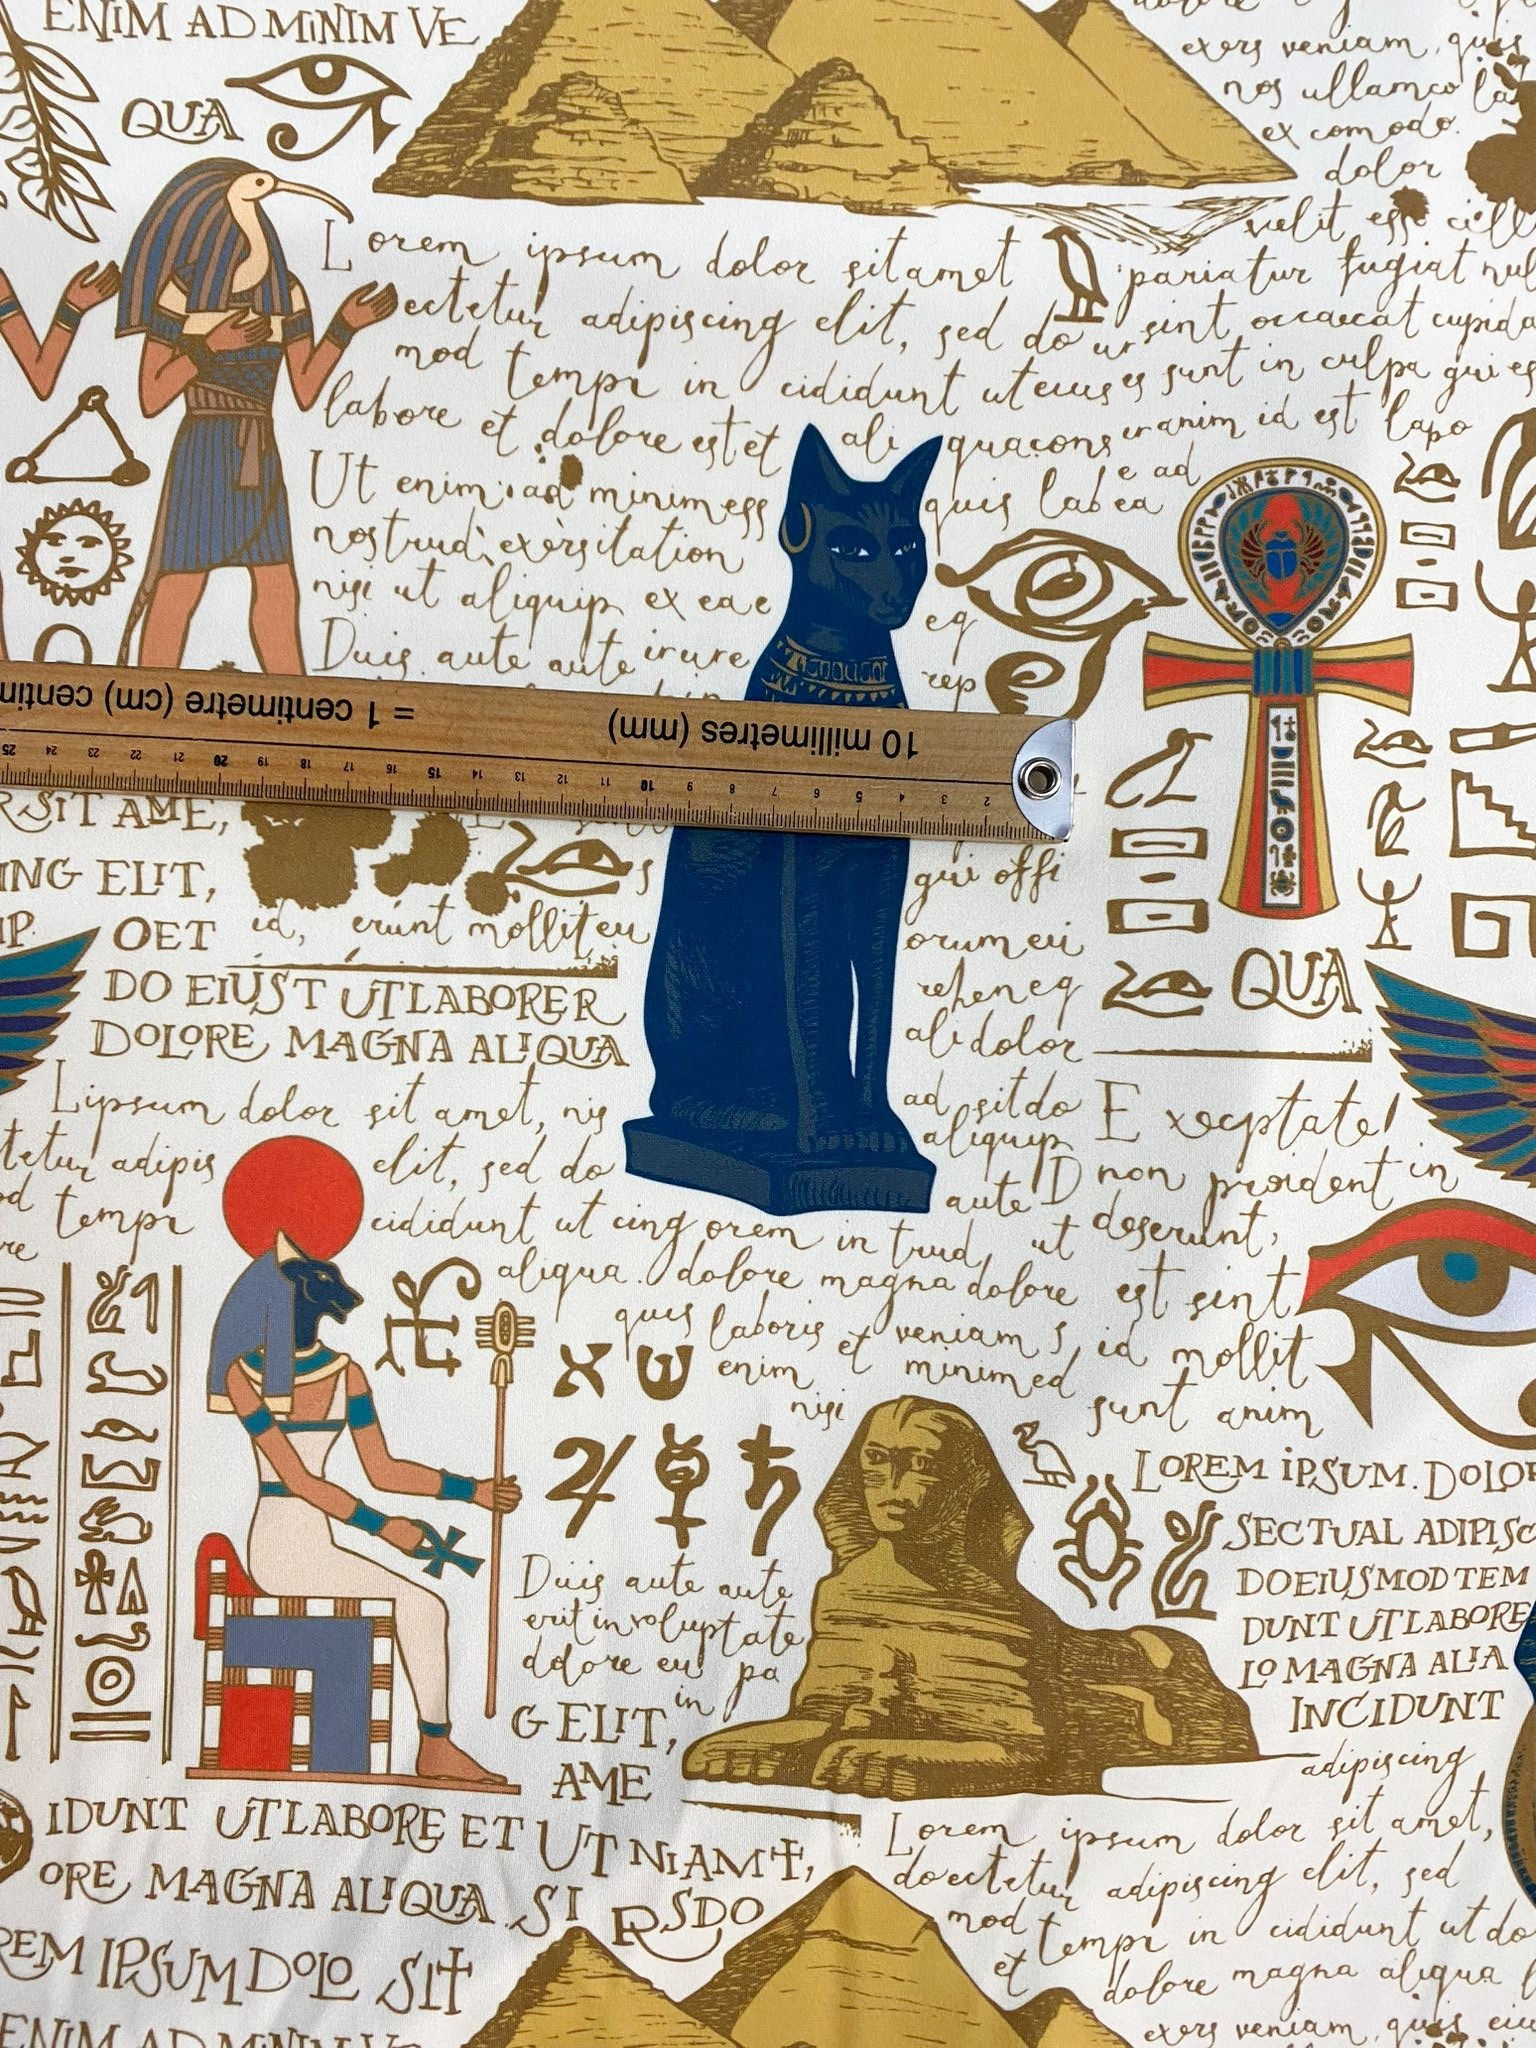 ENIM AD MINIM VE
QUA
exers veniam, quis
nos ullamco la
ex comodo.
dolor
velit esse cill
Lorem ipsum dolor sit amet
pariatur fugiat nul
ectetur adipiscing elit, sed do ur
sint occaecat cupida
mod tempr in cididunt ut eius es
sunt in culpa qui es
labore et dolore est et ali quacons
anim id est lapo
Ut enim ad minimess
quis lab ea
e ad
nostrud exèrsitation
nisi ut aliquip ex ea e
eq
Duis aute aute irure
rep
= 1 centimetre (cm)
10 millimetres (mm)
25 24 23 22 21 20 19 18 17 16 15 14 13 12 11 10 9 8 7 6 5 4 3 2
RSIT AME,
ING ELIT,
s
qui offi
IP.
OET id, erunt mollit eu
orum eu
QUA
DO EIUST UTLABORER
rehen eq
DOLORE MAGNA ALIQUA
ali dolor
Lipsum dolor sit amet, nis
ad sit do
aliquip
Execptate
tetur adipis
elit, sed do
aute D
non proident in
od tempr
cididunt ut cing orem in trud, ut
deserunt,
re
aliqua. dolore magna dolore
est sint
quis laboris et veniam s,
id mollit
enim et minimed
nisi
sunt anim
LOREM IPSUM. DOLOR
SECTUAL ADIPISC
Duis aute aute
DOEIUSMOD TEM
erit in voluptate
DUNT UTLABORE
dolore eu pa
LO MAGNA ALIA
in
GELIT,
INCIDUNT
AME
adipiscing
IDUNT UTLABORE ET UT NIAMT,
Lorem ipsum dolor sit amet,
ORE MAGNA ALIQUA SI RSDO
doectetur adipiscing elit, sed
mod tempr in cididunt ut do
REM IPSUM DOLO SIT
et
dolore magna aliqua
ENIM AD MINIM VE
exers veniam, quis eiu